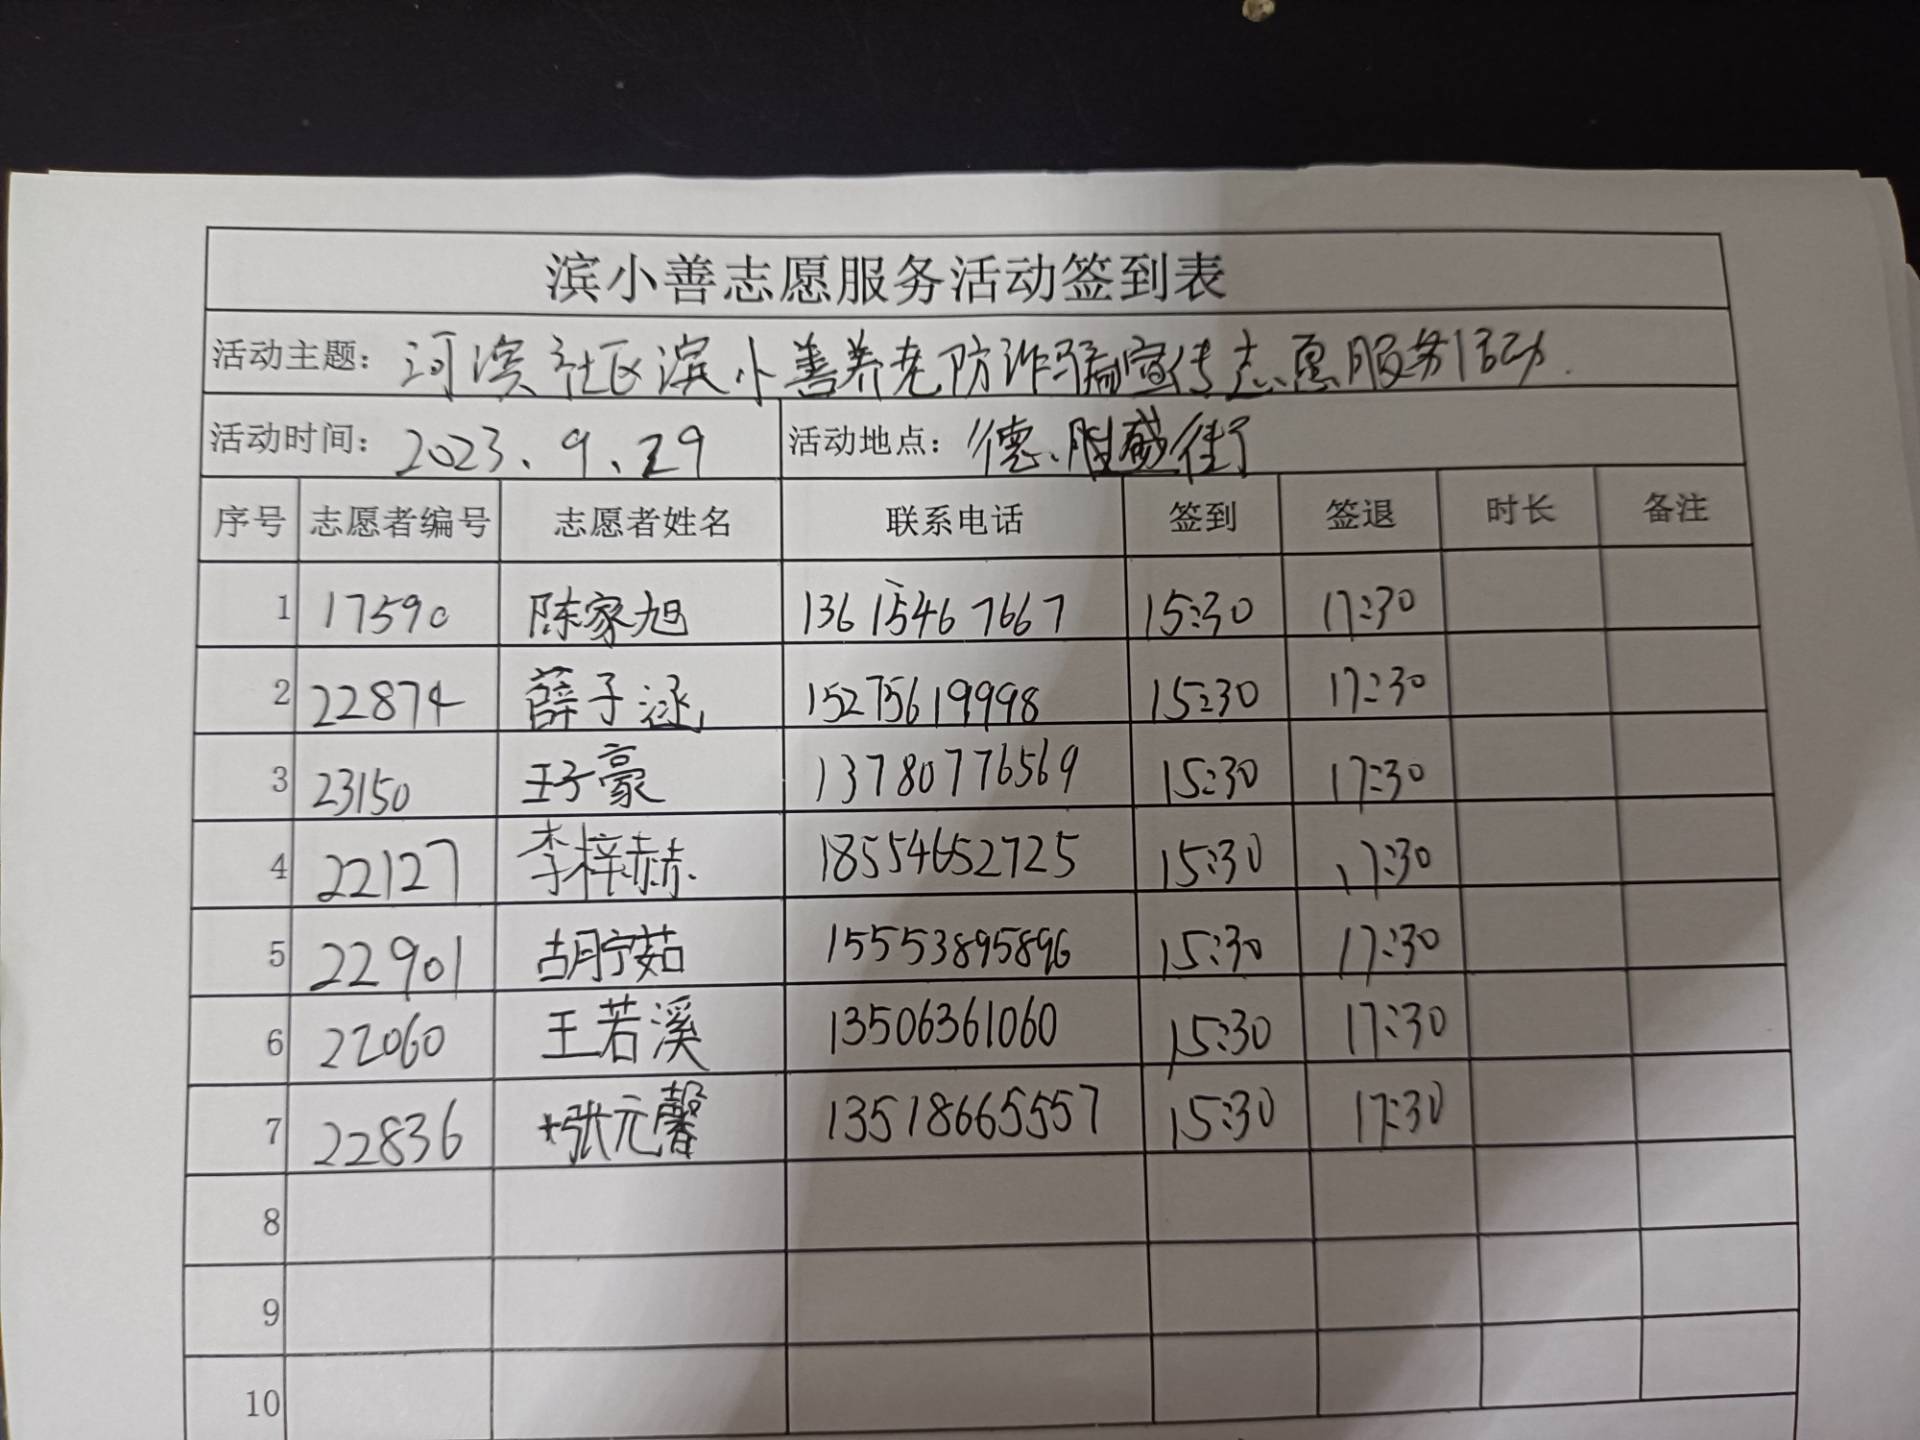 滨小善志愿服务活动签到表
活动主题：河滨社区滨小善养老防诈骗宣传志愿服务活动.
活动时间：2023、9、29 活动地点：德胜盛街
序号 志愿者编号 志愿者姓名 联系电话 签到 签退 时长 备注
1 17590 陈家旭 13615467667 15:30 17:30
2 22874 薛子涵 15275619998 15:30 17:30
3 23150 王子豪 13780776569 15:30 17:30
4 22127 李梓赫 18554652725 15:30 17:30
5 22901 胡宁茹 15553895896 15:30 17:30
6 22060 王若溪 13506361060 15:30 17:30
7 22836 张元馨 13518665557 15:30 17:30
8
9
10